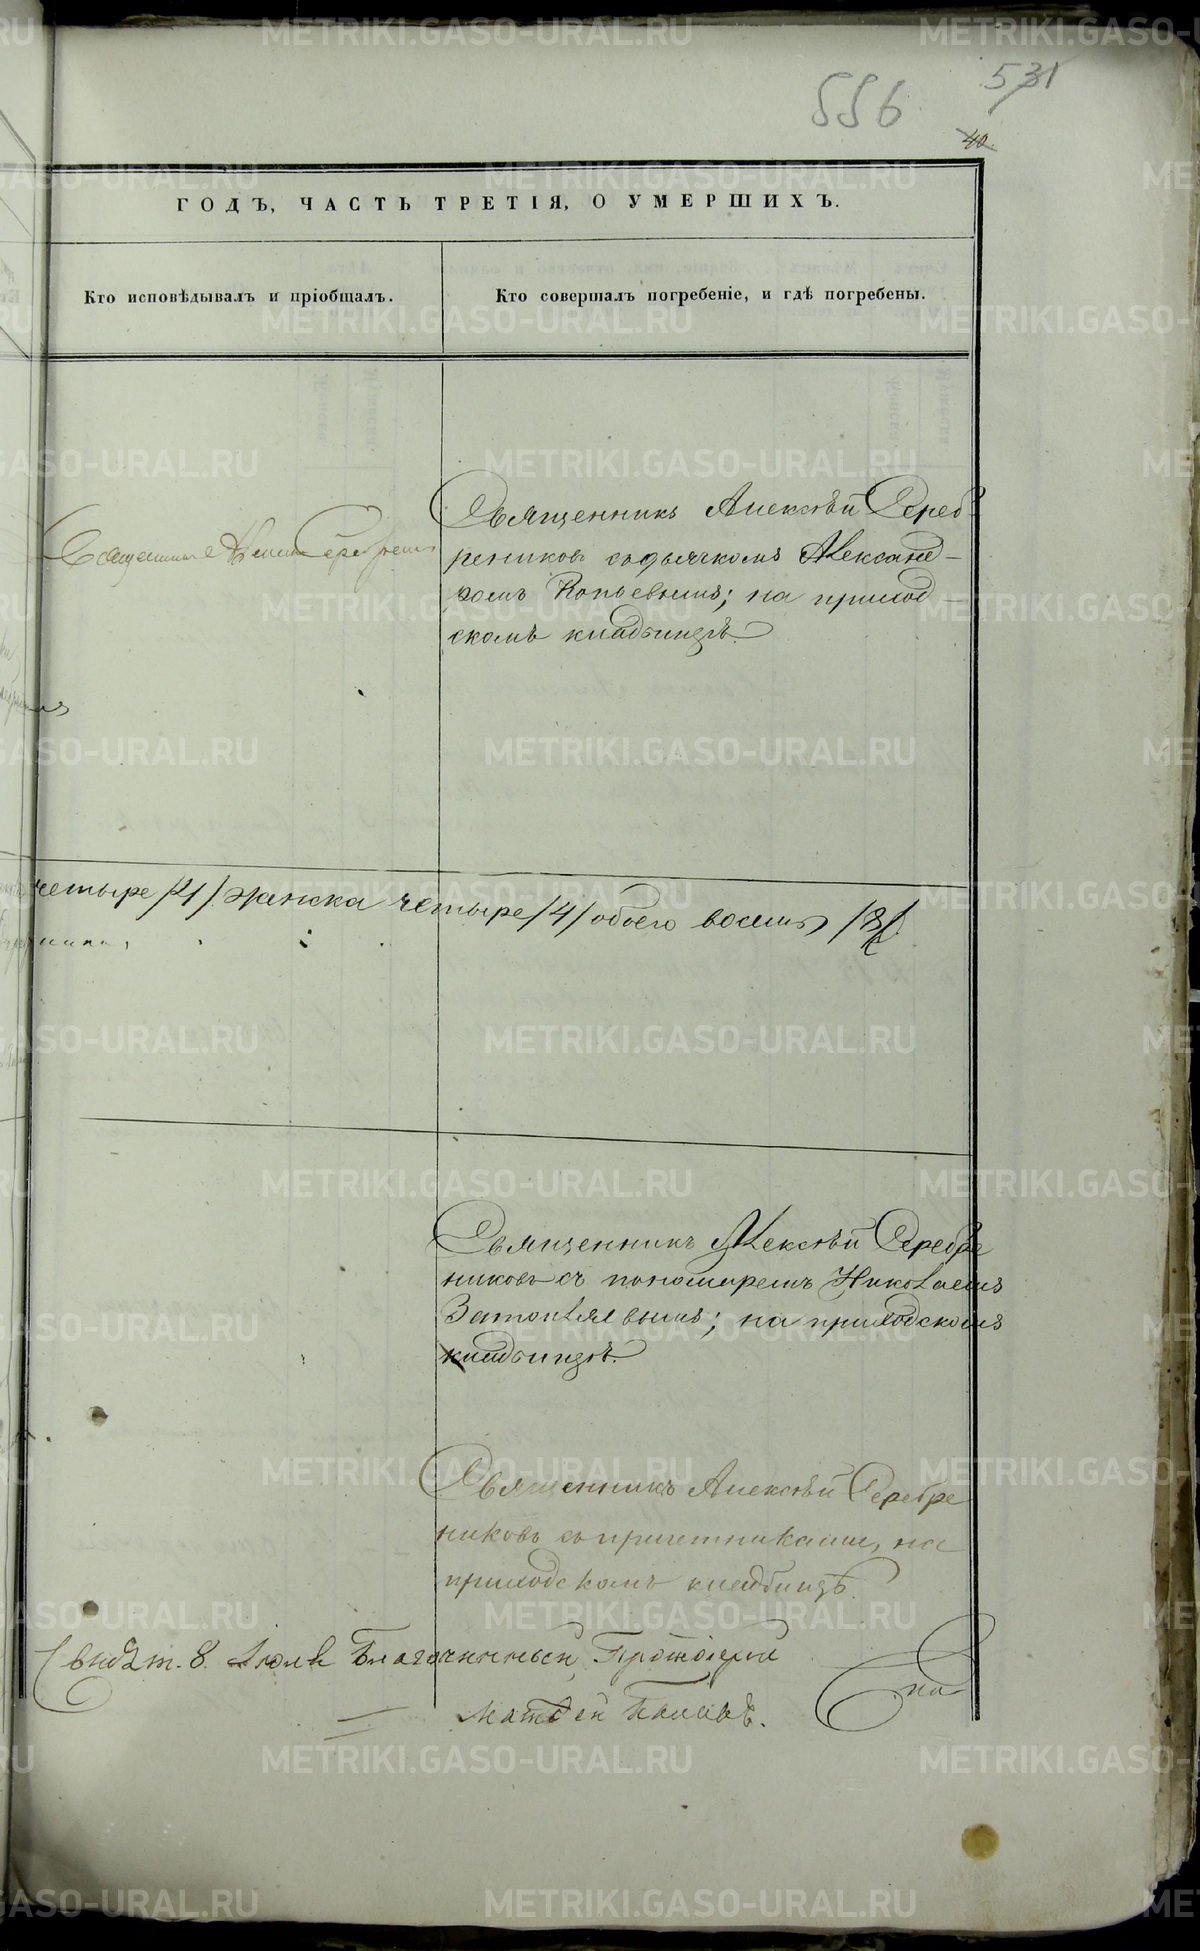 556
531
40
ГОДЪ, ЧАСТЬ ТРЕТІЯ, О УМЕРШИХЪ.
Кто исповѣдывалъ и пріобщалъ.
Кто совершалъ погребеніе, и гдѣ погребены.
Священникъ Алексѣй Сереб-
рениковъ съ дьячкомъ Александ-
ромъ Копьевымъ; на приход-
скомъ кладбищѣ.
четыре /4/ женска четыре /4/ обоего восемь /8/.
Священникъ Алексѣй Серебре
никовъ съ пономаремъ Николаемъ
на приходскомъ
кладбищѣ.
Священникъ Алексѣй Серебре
никовъ съ причетниками, на
приходскомъ кладбищѣ.
8. Благочинный Протоіерей
Матвей Поповъ.
METRIKI.GASO-URAL.RU